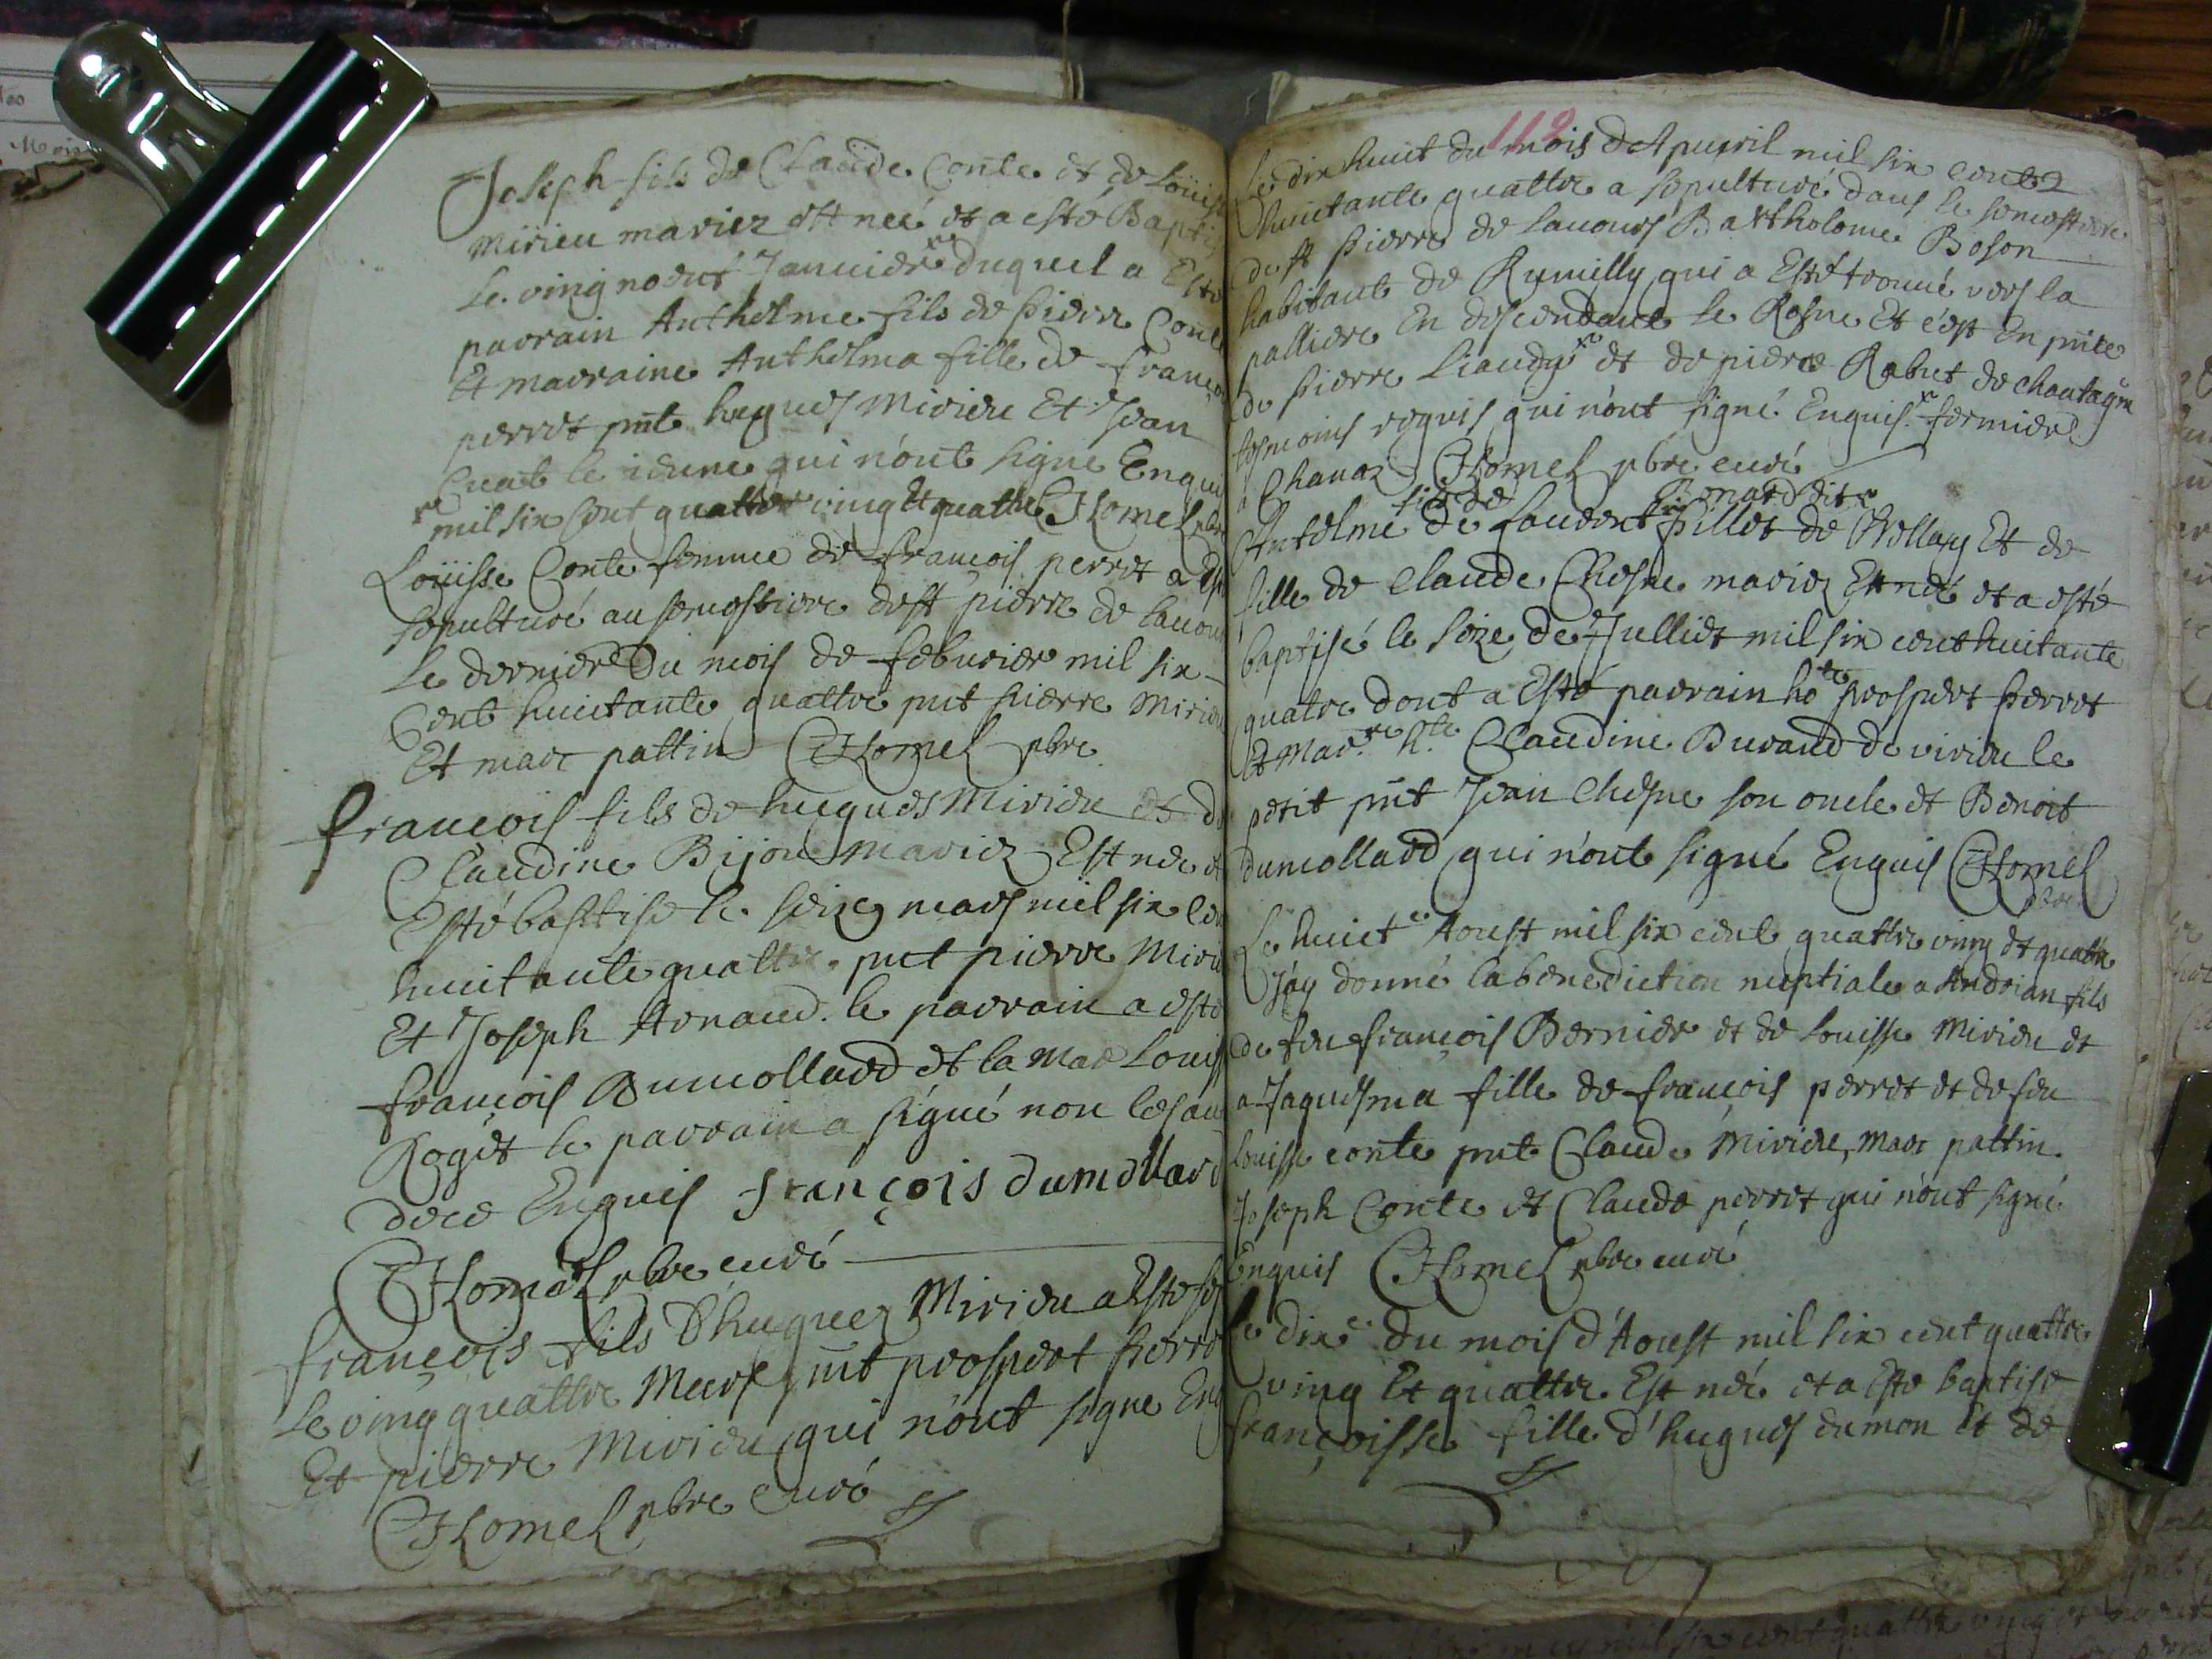 Joseph fils de Claude Conte et de Louise
Mirieu mariez est neé et a esté Baptisé
Le ving noeuf Januier duquel a Esté
parrain Anthelme fils de pierre Conte
Et marraine Anthelma fille de françois
perret pnt hugues Mirieu Et Jean
Curat le ieune qui n'ont signé Enquis
mil six Cent quattre ving Et quattre CHomel pbre
Loüisse Conte femme de françois perret a Esté
sepulturé au semestiere de st pierre de lauours
Le dernier Du mois de februier mil six
Cent huictante quattre pnt pierre Mirieu
Et marc pattin CHomel pbre
françois fils de hugues Mirieu et de
Claudine Bijou mariez Est née et
Esté baptise le seize mars mil six cent
huictante quattre pnt pierre Mirieu
Et Joseph Arnaud. le parrain a esté
françois Dumollard et la Mar Louisse
Roget le parrain a signé non les au
Enquis françois dumollard
CHomel pbre curé
françois fils D'hugues Mirieu a Esté
Le ving quattre Mars pnt prospert perret
Et pierre Mirieu qui n'ont signe Enq
CHomel pbre Curé
112
Le dix huict du mois d'Apuril mil six cent
huictante quattre a sepulturé dans le semestiere
de st pierre de lauours Bartholome Boson
habitant de Rumilly qui a Esté trouué vers la
palliere En descendant le Rosne Et c'est En pnte
de pierre Liaudy et de pierre Rabut de chautagne
tesmoins requis qui n'ont signé Enquis fermier
a Chanaz CHomel pbre curé
fils de Bonard dit
Antelme de Laurent pillet de Rollay Et de
fille de Claude Chesne mariez Est neé et a esté
baptisé le seze de Julliet mil six cent huitante
quatre dont a Esté parrain ho.te prospert perret
Et Mar.re h.te Claudine Durand de virieu le
petit pnt Jean Chesne son oncle et Benoit
dumollard qui n'ont signé Enquis CHomel
pbre
Le huict e Aoust mil six cent quattre ving et quattre
J'ay donné la benediction nuptiale a Andrian fils
de feu françois Bernier et de Louisse Mirieu et
a Jaquesma fille de françois perret et de feu
louisse conte pnt Claude Mirieu, Marc pattin
Joseph Conte et Claude perret qui n'ont signé
Enquis CHomel pbre curé
Le dix e du mois d'Aoust mil six cent quattre
ving Et quattre Est neé et a Esté baptise
françoisse fille d'hugues dumon et de